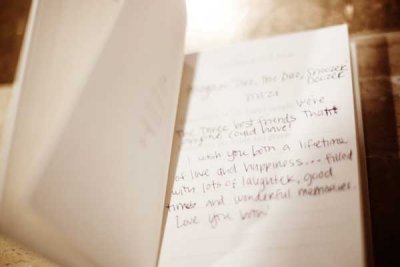 The Snoozer
Doozer
We're
The three best friends That
anyone could have!
I wish you both a lifetime
of love and happiness... filled
with lots of laughter, good
times and wonderful memories.
Love you both!